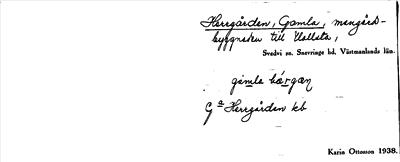 Herrgården, Gamla, mangårds-
byggnaden till Hallsta,
Svedvi sn. Snevringe hd. Västmanlands län.
gamla hærgan
Ga Herrgården kb
Karin Ottosson 1938.